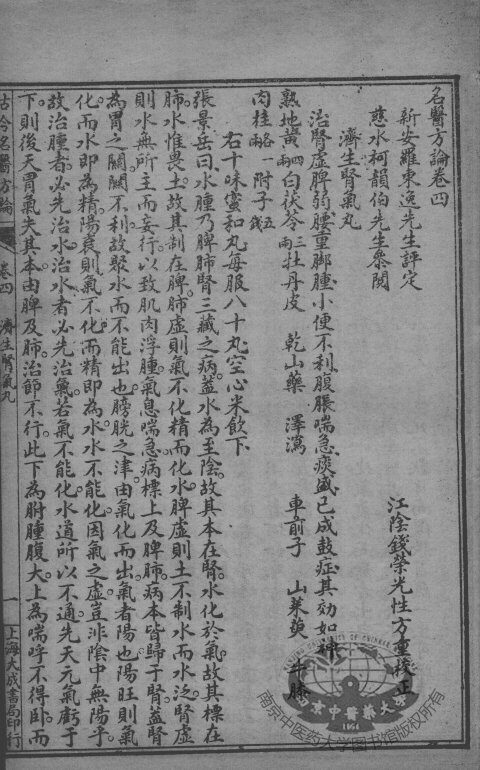 名醫方論卷四
新安羅東逸先生評定
慈水柯韻伯先生參閱 江陰錢榮光性方重校正
濟生腎氣丸
治腎虛脾弱腰重脚腫小便不利腹脹喘急痰盛已成鼓症其効如神
熟地黃四兩 白茯苓三兩 牡丹皮 乾山藥 澤瀉 車前子 山茱萸 牛膝
肉桂一兩 附子五錢
右十味蜜和丸每服八十丸空心米飲下
張景岳曰水腫乃脾肺腎三藏之病蓋水為至陰故其本在腎水化於氣故其標在
肺水惟畏土故其制在脾肺虛則氣不化精而化水脾虛則土不制水而水泛腎虛
則水無所主而妄行以致肌肉浮腫氣息喘急病標上及脾肺病本皆歸于腎蓋腎
為胃之關關不利故聚水而不能出也膀胱之津由氣化而出氣者陽也陽旺則氣
化而水即為精陽衰則氣不化而精即為水水不能化因氣之虛豈非陰中無陽乎
故治腫者必先治水治水者必先治氣若氣不能化水道所以不通先天元氣虧于
下則後天胃氣失其本由脾及肺治節不行此下為胕腫腹大上為喘呼不得臥而
古今名醫方論 卷四 濟生腎氣丸 一 上海大成書局印行
南京中醫藥大學
1954
南京中医药大学图书馆版权所有